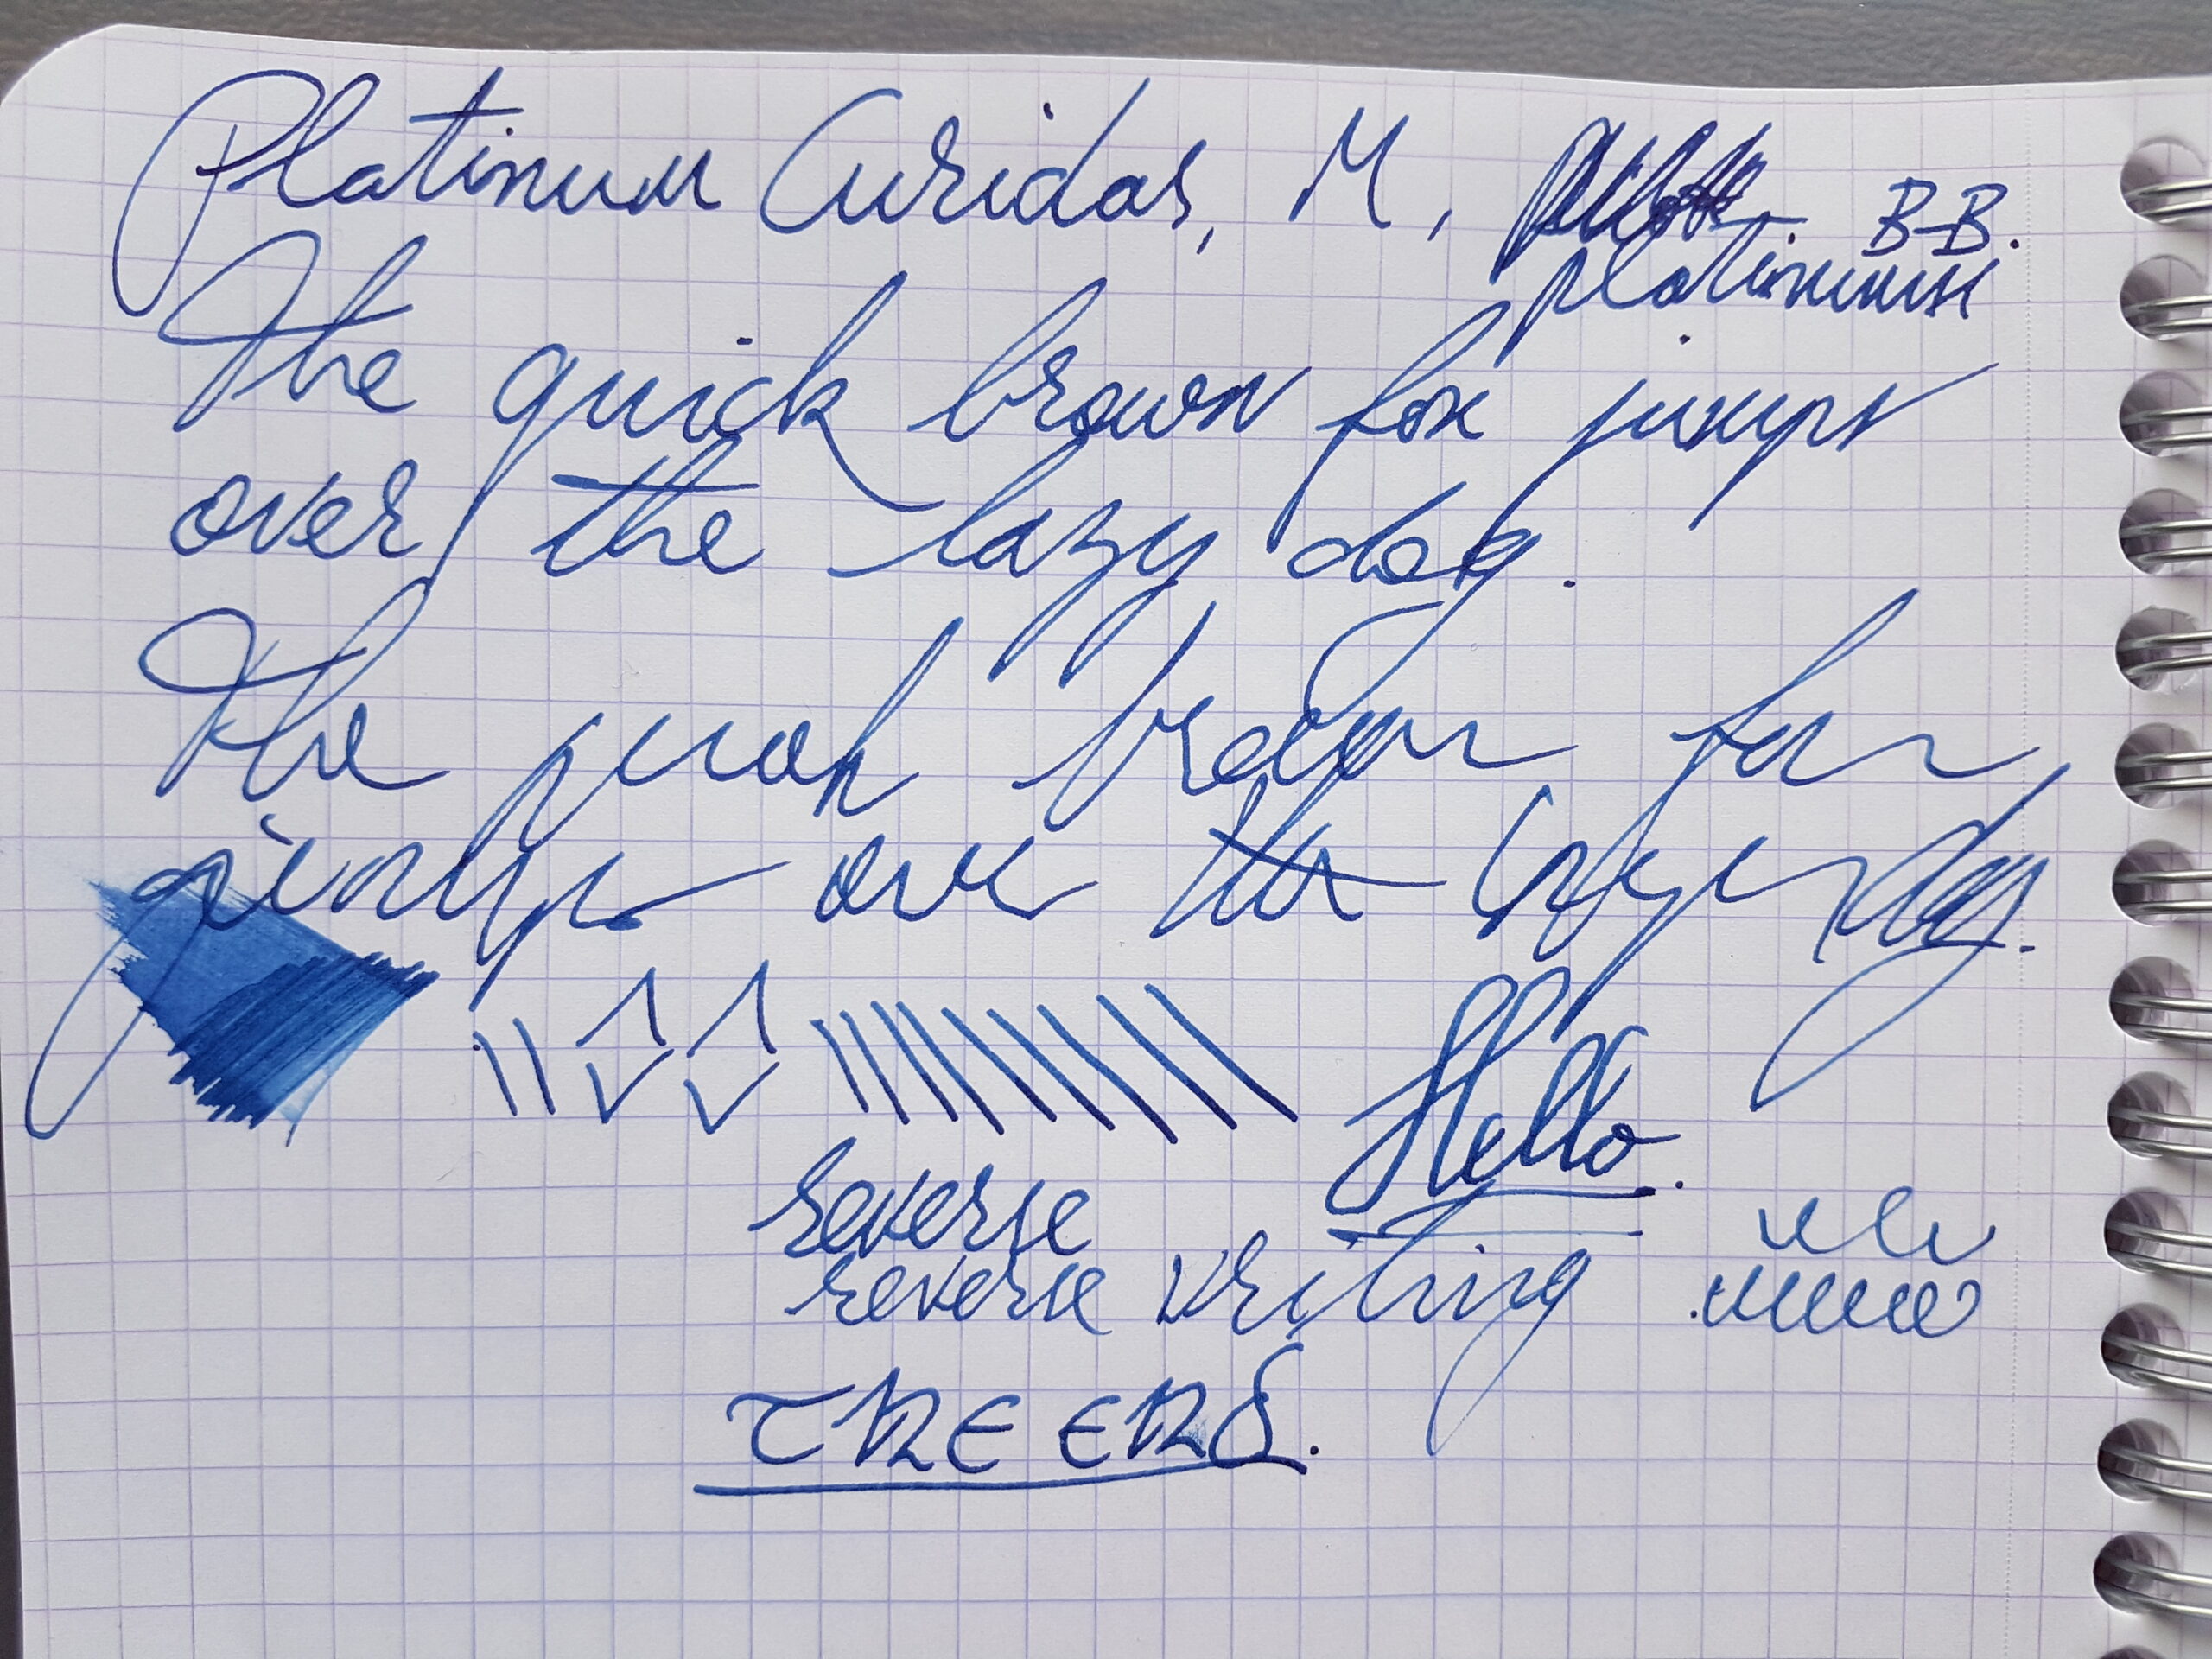 Platinum Curidas, M, B-B.
platinum
The quick brown fox jumps
over the lazy dog.
The quick brown fox
jumps over the lazy dog.
Hello.
reverse
reverse writing
THE END.